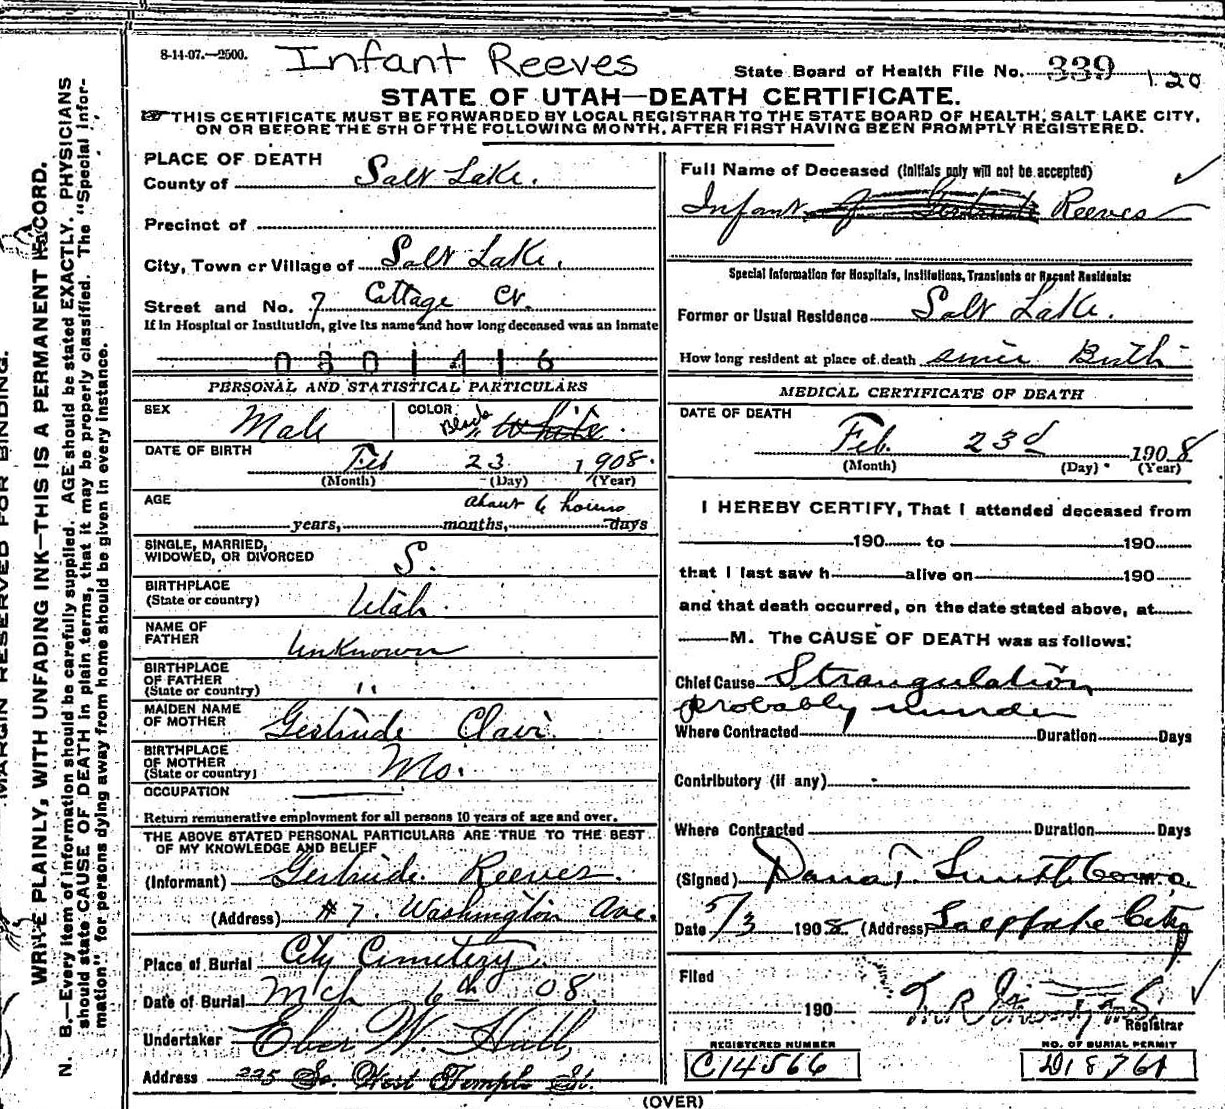 8-14-07.—2500.
Infant Reeves
State Board of Health File No. 339
1.20
STATE OF UTAH—DEATH CERTIFICATE.
THIS CERTIFICATE MUST BE FORWARDED BY LOCAL REGISTRAR TO THE STATE BOARD OF HEALTH, SALT LAKE CITY,
ON OR BEFORE THE 5TH OF THE FOLLOWING MONTH, AFTER FIRST HAVING BEEN PROMPTLY REGISTERED.
MARGIN RESERVED FOR BINDING.
WRITE PLAINLY, WITH UNFADING INK—THIS IS A PERMANENT RECORD.
N. B.—Every item of information should be carefully supplied. AGE should be stated EXACTLY. PHYSICIANS
should state CAUSE OF DEATH in plain terms, that it may be properly classified. The "Special Infor-
mation" for persons dying away from home should be given in every instance.
PLACE OF DEATH
County of Salt Lake.
Precinct of
City, Town or Village of Salt Lake.
Street and No. 7 Cottage Ct.
If in Hospital or Institution, give its name and how long deceased was an inmate
0301416
PERSONAL AND STATISTICAL PARTICULARS
SEX Male
COLOR Black White.
DATE OF BIRTH Feb 23 1908.
(Month) (Day) (Year)
AGE about 6 hours
years, months, days
SINGLE, MARRIED,
WIDOWED, OR DIVORCED S.
BIRTHPLACE
(State or country) Utah
NAME OF
FATHER Unknown
BIRTHPLACE
OF FATHER
(State or country) "
MAIDEN NAME
OF MOTHER Gertrude Clair.
BIRTHPLACE
OF MOTHER
(State or country) Mo.
OCCUPATION
Return remunerative employment for all persons 10 years of age and over.
THE ABOVE STATED PERSONAL PARTICULARS ARE TRUE TO THE BEST
OF MY KNOWLEDGE AND BELIEF
(Informant) Gertrude Reeves.
(Address) #7. Washington Ave.
Place of Burial City Cemetery.
Date of Burial Mch 6th 08.
Undertaker Eber W. Hall,
Address 225 So. West Temple St.
Full Name of Deceased (Initials only will not be accepted)
Infant of Gertrude Reeves
Special Information for Hospitals, Institutions, Transients or Recent Residents:
Former or Usual Residence Salt Lake.
How long resident at place of death since Birth
MEDICAL CERTIFICATE OF DEATH
DATE OF DEATH
Feb. 23d 1908
(Month) (Day) (Year)
I HEREBY CERTIFY, That I attended deceased from
190 to 190
that I last saw h alive on 190
and that death occurred, on the date stated above, at
M. The CAUSE OF DEATH was as follows:
Chief Cause Strangulation
probably murder
Where Contracted Duration Days
Contributory (if any)
Where Contracted Duration Days
(Signed) Dana T. Smith M.D.
Date 5/3 1908 (Address) Salt Lake City
Filed
190
Registrar
REGISTERED NUMBER
C14566
NO. OF BURIAL PERMIT
D18761
(OVER)